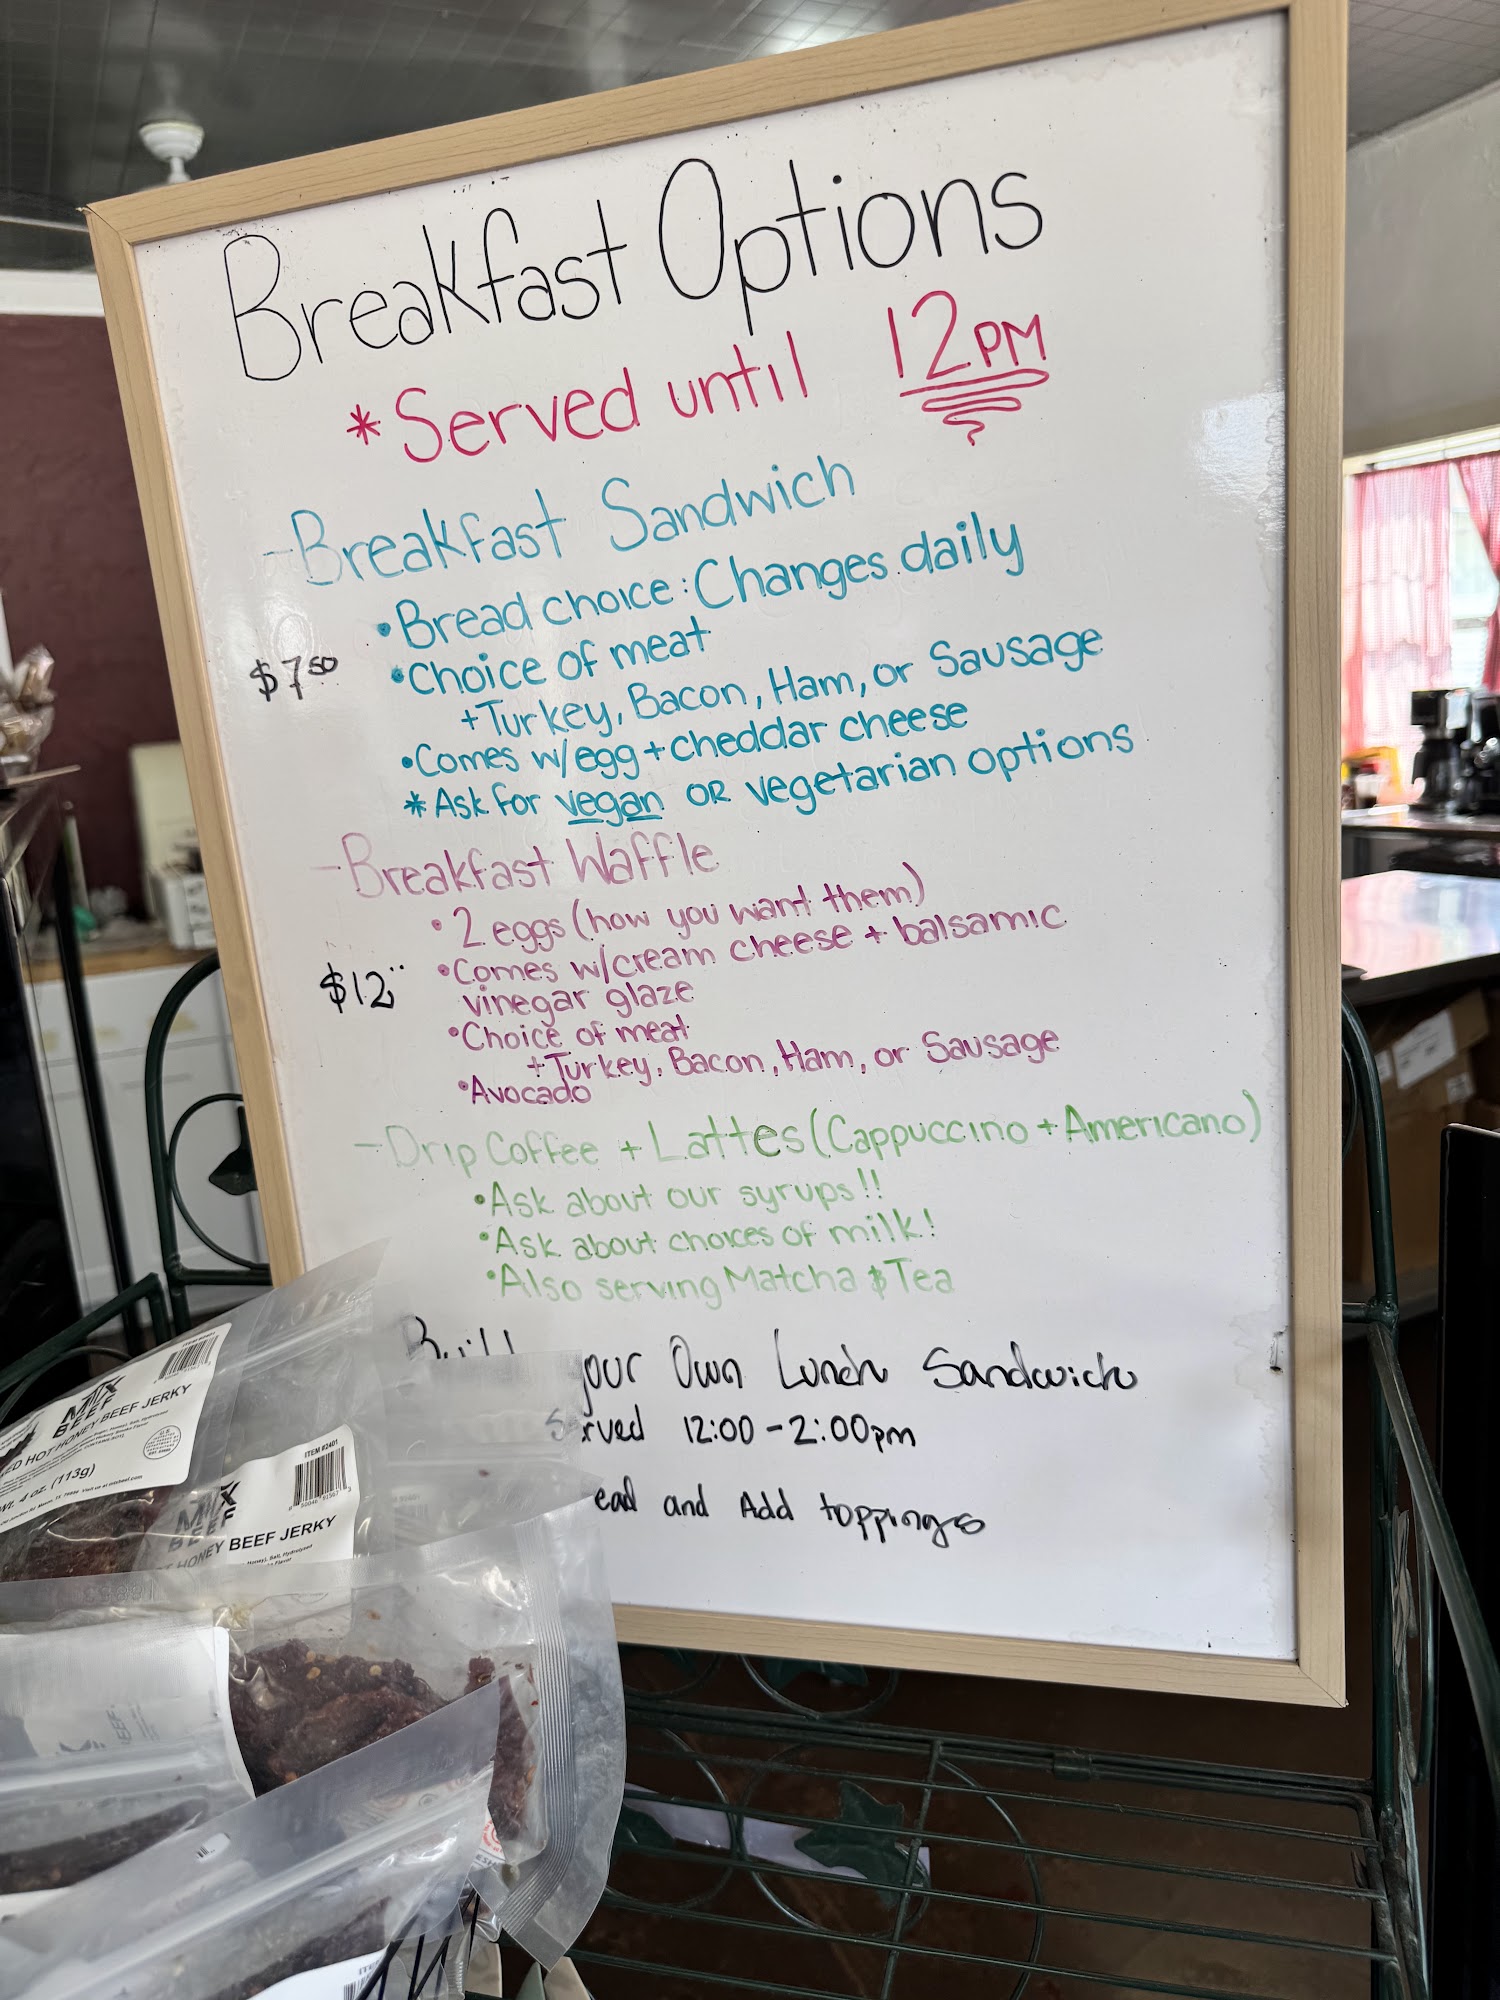 Breakfast Options
*Served until 12PM
-Breakfast Sandwich
•Bread choice: Changes daily
•Choice of meat
$7.50
+Turkey, Bacon, Ham, or Sausage
•Comes w/egg + cheddar cheese
*Ask for vegan OR vegetarian options
-Breakfast Waffle
•2 eggs (how you want them)
•Comes w/cream cheese + balsamic
$12
vinegar glaze
•Choice of meat
+Turkey, Bacon, Ham, or Sausage
•Avocado
-Drip Coffee + Lattes (Cappuccino + Americano)
•Ask about our syrups!!
•Ask about choices of milk!
•Also serving Matcha & Tea
Build your Own Lunch Sandwich
Served 12:00-2:00pm
and Add toppings
MTX
BEEF
HOT HONEY BEEF JERKY
4 oz. (113g)
ITEM #2401
MTX
BEEF
HONEY BEEF JERKY